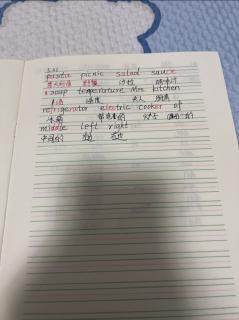 pasta picnic salad sauce
意大利面 野餐 沙拉
soup temperature Mrs kitchen
温度 夫人 厨房
refrigerator electric cooker of
冰箱 的
middle left right
中间的